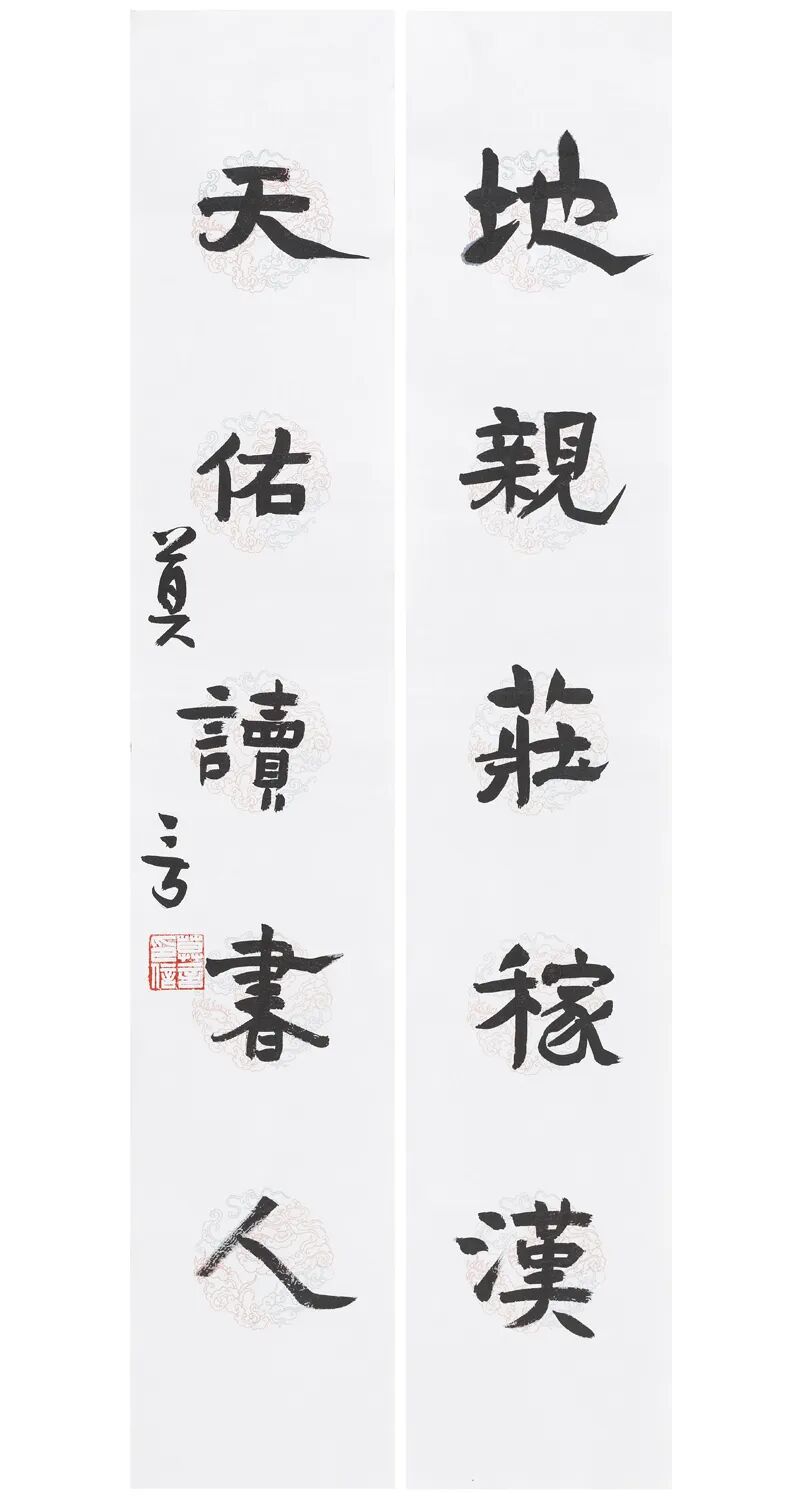 地親莊稼漢
天佑讀書人
莫言